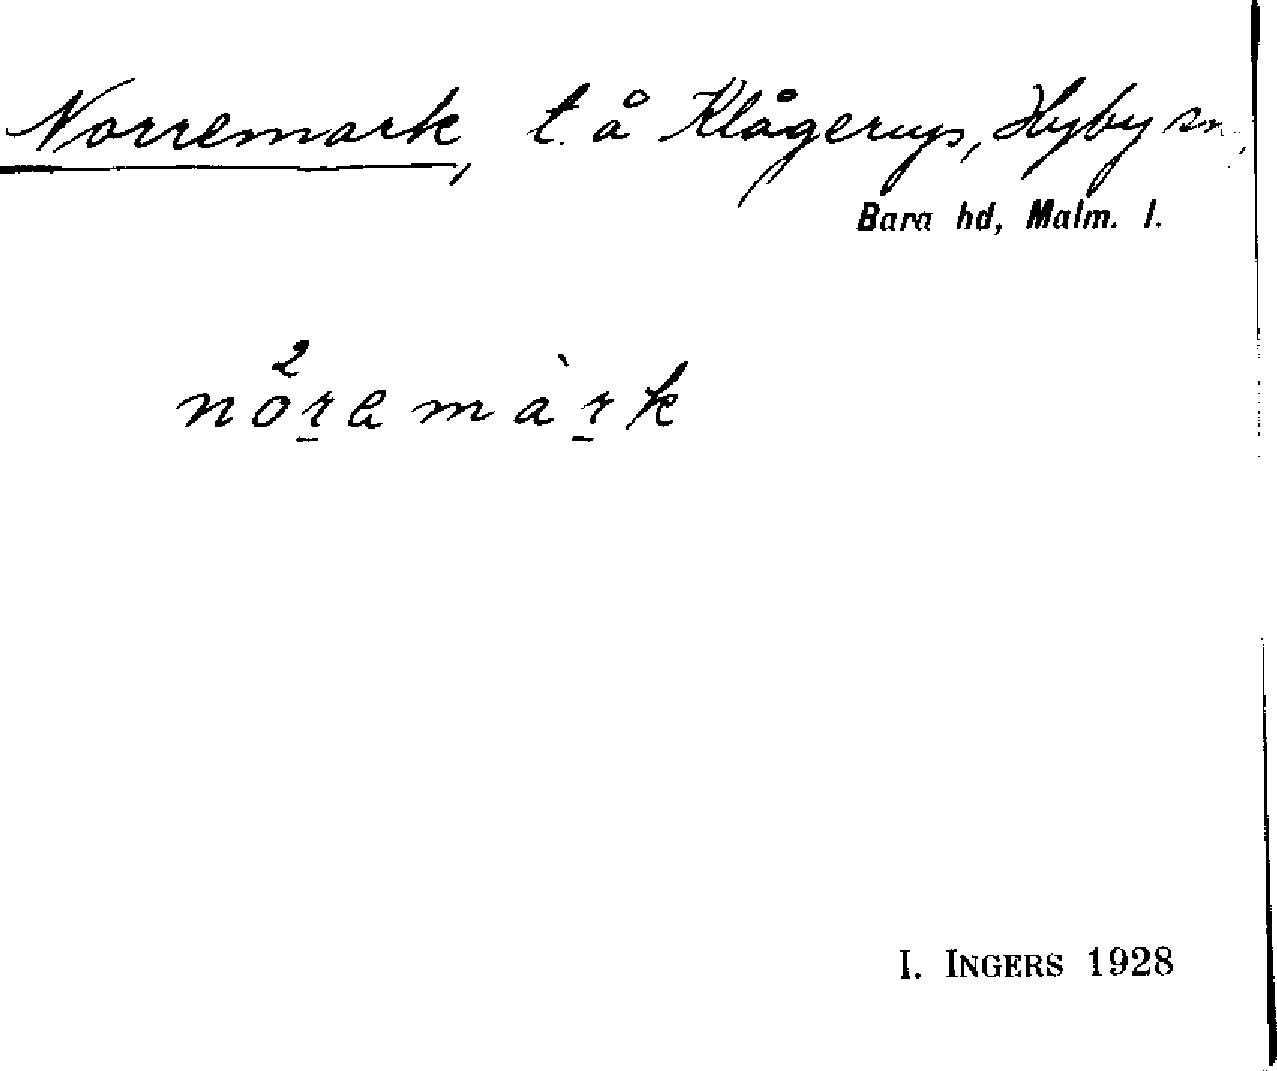 Norremark, t. å Klågerups, Hyby sn,
Bara hd, Malm. l.
nö²r̲amàr̲k
I. INGERS 1928